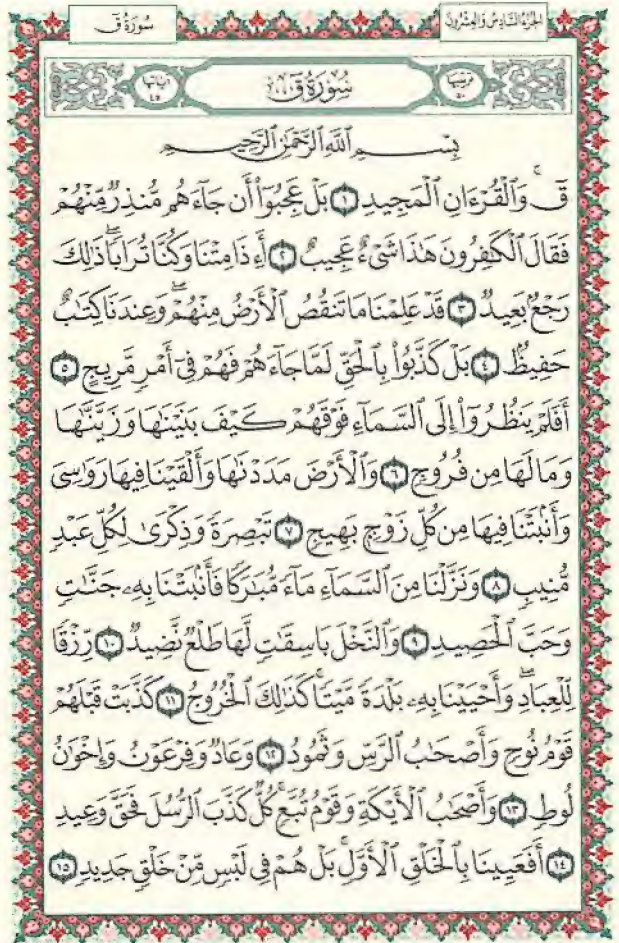 الجزء السادس والعشرون
سورة ق
ترتيبها ٥٠
سُورَةُ قٓ
آياتها ٤٥
بِسْمِ ٱللَّهِ ٱلرَّحْمَٰنِ ٱلرَّحِيمِ
قٓۚ وَٱلْقُرْءَانِ ٱلْمَجِيدِ ١ بَلْ عَجِبُوٓا۟ أَن جَآءَهُم مُّنذِرٌ مِّنْهُمْ
فَقَالَ ٱلْكَٰفِرُونَ هَٰذَا شَىْءٌ عَجِيبٌ ٢ أَءِذَا مِتْنَا وَكُنَّا تُرَابًا ۖ ذَٰلِكَ
رَجْعٌۢ بَعِيدٌ ٣ قَدْ عَلِمْنَا مَا تَنقُصُ ٱلْأَرْضُ مِنْهُمْ ۖ وَعِندَنَا كِتَٰبٌ
حَفِيظٌۢ ٤ بَلْ كَذَّبُوا۟ بِٱلْحَقِّ لَمَّا جَآءَهُمْ فَهُمْ فِىٓ أَمْرٍ مَّرِيجٍ ٥
أَفَلَمْ يَنظُرُوٓا۟ إِلَى ٱلسَّمَآءِ فَوْقَهُمْ كَيْفَ بَنَيْنَٰهَا وَزَيَّنَّٰهَا
وَمَا لَهَا مِن فُرُوجٍ ٦ وَٱلْأَرْضَ مَدَدْنَٰهَا وَأَلْقَيْنَا فِيهَا رَوَٰسِىَ
وَأَنۢبَتْنَا فِيهَا مِن كُلِّ زَوْجٍۭ بَهِيجٍ ٧ تَبْصِرَةً وَذِكْرَىٰ لِكُلِّ عَبْدٍ
مُّنِيبٍ ٨ وَنَزَّلْنَا مِنَ ٱلسَّمَآءِ مَآءً مُّبَٰرَكًا فَأَنۢبَتْنَا بِهِۦ جَنَّٰتٍ
وَحَبَّ ٱلْحَصِيدِ ٩ وَٱلنَّخْلَ بَاسِقَٰتٍ لَّهَا طَلْعٌ نَّضِيدٌ ١٠ رِّزْقًا
لِّلْعِبَادِ ۖ وَأَحْيَيْنَا بِهِۦ بَلْدَةً مَّيْتًا ۚ كَذَٰلِكَ ٱلْخُرُوجُ ١١ كَذَّبَتْ قَبْلَهُمْ
قَوْمُ نُوحٍ وَأَصْحَٰبُ ٱلرَّسِّ وَثَمُودُ ١٢ وَعَادٌ وَفِرْعَوْنُ وَإِخْوَٰنُ
لُوطٍ ١٣ وَأَصْحَٰبُ ٱلْأَيْكَةِ وَقَوْمُ تُبَّعٍ ۚ كُلٌّ كَذَّبَ ٱلرُّسُلَ فَحَقَّ وَعِيدِ
١٤ أَفَعَيِينَا بِٱلْخَلْقِ ٱلْأَوَّلِ ۚ بَلْ هُمْ فِى لَبْسٍ مِّنْ خَلْقٍ جَدِيدٍ ١٥